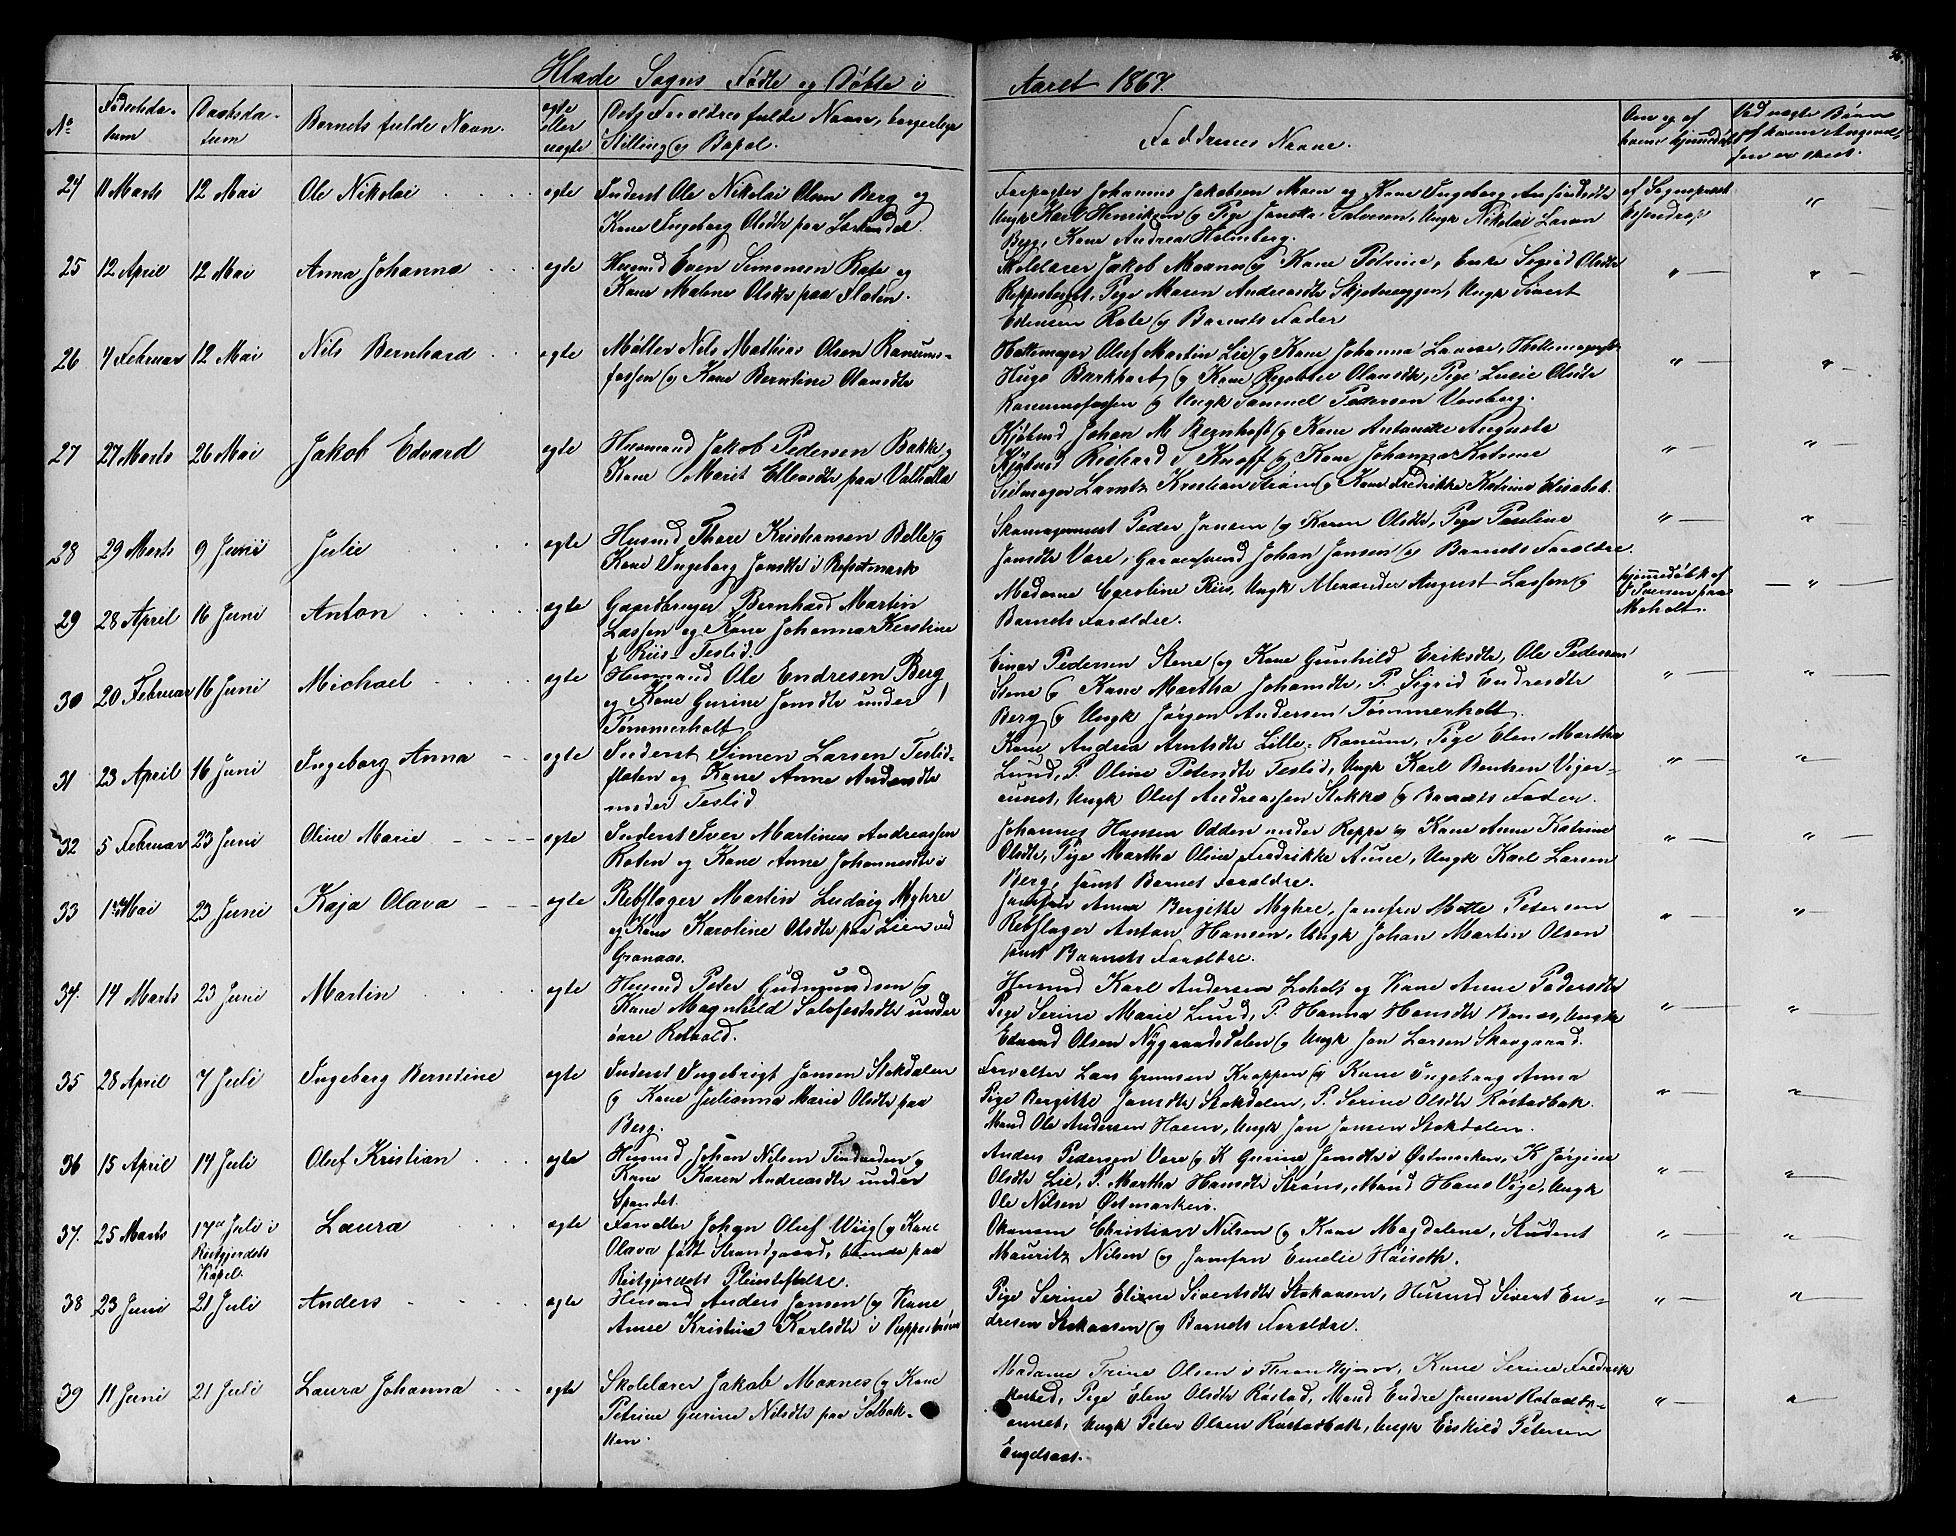 Hlade Sogns Fødte og Døbte i Aaret 1867.
No Fødselsdatum Daabsdatum Barnets fulde Navn. ægte eller uægte Dets Forældres fulde Navne, borgerlige Stilling og Bopæl. Faddernes Navne.
24 11 Marts 12 Mai Ole Nikolai ægte
Inderst Ole Nikolai Olsen Berg og
Kone Ingeborg Olsdtr paa
Forpagter Johannes Jakobsen Moen og Kone Ingeborg
Ungk Karl Henriksen og Pige Ungk Nikolai Larsen
Berg, Kone Andrea Holmberg.
af Sognepræst
25 12 April 12 Mai Anna Johanna ægte
Husmd Even Simonsen Rate og
Kone Malene Olsdtr paa Flaten.
Skolelærer Jakob Moxnes og Kone Petrine, Enke Sigrid Olsdtr
Reppesberget, Pige Maren Andreasdtr Ungk Sivert
Rate og Barnets Fader
26 4 Februar 12 Mai Nils Bernhard ægte
Møller Nils Mathias Olsen Ranums-
fossen og Kone Berntine Olausdtr
Hattemager Oluf Martin Lie og Kone Johanna Laura,
Hugo Burkhart og Kone Olausdtr, Pige Lucie Olsdtr
Ranumsfossen og Ungk Samuel Pedersen Venberg.
27 27 Marts 26 Mai Jakob Edvard ægte
Husmand Jakob Pedersen Bakke og
Kone Marit Ellensdtr paa Valhalla
Kjøbmd Johan M Bernhoft og Kone Antonette Augusta
Kjøbmd Richard Knoff og Kone Johanna Katrine
Seilmager Lorntz Kristian Strøm og Kone Fredrikke Katrine Elisabet.
28 29 Marts 9 Juni Julie ægte
Husmd Thore Kristiansen Belle og
Kone Ingeborg Jonsdtr i
Skomagersvend Peder Jansen og Karen Olsdtr, Pige Pauline
Jonsdtr Vare, Garversvend Johan Jansen og Barnets Forældre.
29 28 April 16 Juni Anton ægte
Gaardbruger Bernhard Martin
Lassen og Kone Johanna Kerstine
f. Riis - Teslid.
Madame Caroline Riis, Ungk Alexander August Lassen og
Barnets Forældre.
hjemmedøbt af
Svensen paa
Moholt.
30 20 Februar 16 Juni Michael ægte
Husmand Ole Endresen Berg
og Kone Gurine Jonsdtr under
Tømmerholt
Einar Pedersen Stene og Kone Gunhild Eriksdtr, Ole Pedersen
Stene og Kone Martha Johansdtr, P. Sigrid Endresdtr
Berg og Ungk Jørgen Andersen Tømmerholt.
31 23 April 16 Juni Ingeborg Anna ægte
Inderst Simen Larsen Teslid-
flaten og Kone Anne Andersdtr
under Teslid
Kone Andrea Arntsdtr Lille-Ranum, Pige Elen Martha
Lund, P. Oline Teslid, Ungk Karl Bentsen
Ungk Oluf Andreassen Stokke og Barnets Fader.
32 5 Februar 23 Juni Oline Marie ægte
Inderst Iver Martinus Andreassen
Roten og Kone Anne Johannesdtr i
Johannes Hansen Odden under Reppe og Kone Anne Katrine
Olsdtr, Pige Martha Oline Fredrikke Aune, Ungk Karl Larsen
Berg, samt Barnets Forældre.
33 1 Mai 23 Juni Kaja Olava ægte
Rebslager Martin Ludvig Myhre
og Kone Karoline Olsdtr paa Lien ved
Granaas.
Jomfru Anna Bergitte Myhre, Jomfru Mette Petersen
Rebslager Anton Hansen, Ungk Johan Martin Olsen
samt Barnets Forældre.
34. 14 Marts 23 Juni Martin ægte
Husmd Peter Gudmundsen og
Kone Magnhild under
øvre Rotvold.
Husmd Karl Andersen Loholt og Kone Anne Pedersdtr
Pige Serine Marie Lund, P. Hanna Hansdtr Ungk
Edvard Olsen Nygaardsdalen og Ungk Jon Larsen Skovgaard.
35 28 April 7 Juli Ingeborg Berntine ægte
Inderst Ingebrigt Jonsen Stokdalen
og Kone Julianna Marie Olsdtr paa
Berg.
Forvalter Lars Kroppen og Kone Ingeborg Anna
Pige Bergitte Jonsdtr Stokdalen, P. Serine Olsdtr Rostadbak.
Mand Ole Andersen Ungk Jon Jonsen Stokdalen.
36 15 April 14 Juli Oluf Kristian ægte
Husmd Johan Nilsen og
Kone Karen Andreasdtr under
Spandet.
Anders Pedersen Vore og K Gurine Jonsdtr i Østmarken, K Jørgine
Olsdtr Lie, P. Martha Hansdtr Strøm, Mand Hans Vige, Ungk
Ole Nilsen Østmarken.
37. 25 Marts 17de Juli i Laura ægte
Reitgjerdets
Kapel.
Forvalter Johan Oluf Wiig og Kone
Olava født Strandgaard, boende paa
Reitgjerdets Pleiestiftelse.
Økonom Christian Nilsen og Kone Magdalene, Student
Mauritz Nilsen og Jomfru Emelie Høiseth.
38 23 Juni 21 Juli Anders ægte
Husmd Anders Jonsen og Kone
Anne Kristine Karlsdtr i
Pige Serine Eline Sivertsdtr Stokaasen, Husmd Sivert En-
dresen Stokaasen og Barnets Forældre.
39 11 Juni 21 Juli Laura Johanna ægte
Skolelærer Jakob Moxnes og Kone
Petrine Gurine Nilsdtr paa Solbak-
ken.
Madame Trine Olsen i Throndhjem, Kone Serine Fredrik
Pige Elen Olsdtr Rostad, Mand Endre Jonsen
Ungk Peter Olsen Rostadbak, Ungk Eiskild Petersen
Engelsaas.